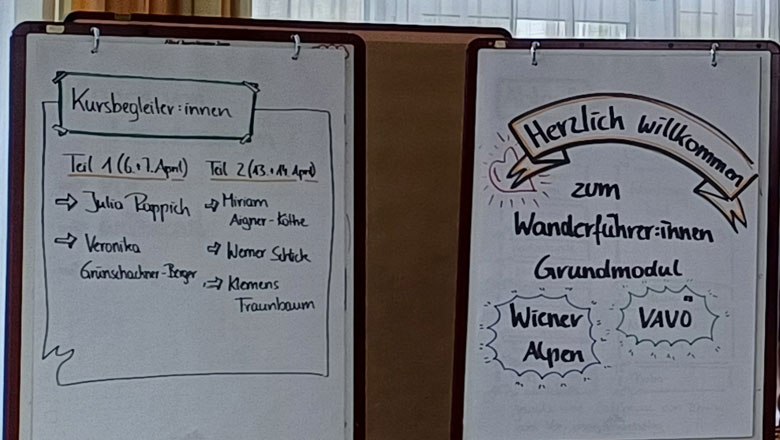 Kursbegleiter:innen
Teil 1 (6.+7. April)
Julia Rappich
Veronika
Grünschachner-Berger
Teil 2 (13.+14. April)
Miriam
Aigner-Köthe
Werner Schlick
Klemens
Traunbaum
Herzlich willkommen
zum
Wanderführer:innen
Grundmodul
Wiener
Alpen
VAVÖ